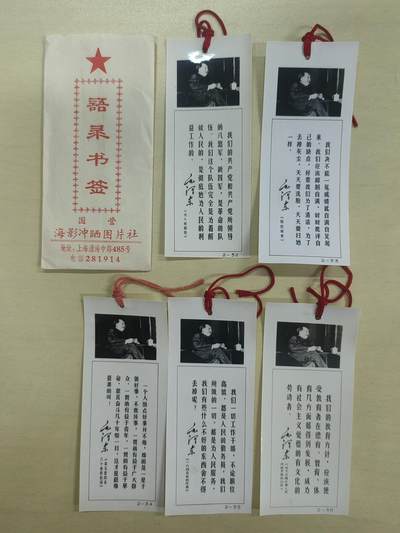 語录书签
国营
海影冲晒图片社
地址:上海淮海中路485号
电话281914
我们的共产党和共产党所领导
的八路军、新四军,是革命的队
伍。我们这个队伍完全是为着解
放人民的,是彻底地为人民的利
益工作的。
毛泽东
《为人民服务》
我们决不能一见成绩就自满自足起
来。我们应该抑制自满,时时批评自
己的缺点,好像我们为了清洁,为了
去掉灰尘,天天要洗脸,天天要扫地
一样。
毛泽东
《组织起来》
一个人做点好事并不难,难的是一辈子
做好事,不做坏事,一贯的有益于广大群
众,一贯的有益于青年,一贯的有益于革
命,艰苦奋斗几十年如一日,这才是最难
最难的啊!
毛泽东
我们一切工作干部,不论职位
高低,都是人民的勤务员,我们
所做的一切,都是为人民服务,
我们有些什么不好的东西舍不得
丢掉呢?
毛泽东
《一九四五年的任务》
我们的教育方针,应该使
受教育者在德育、智育、体
育几方面都得到发展,成为
有社会主义觉悟的有文化的
劳动者。
毛泽东